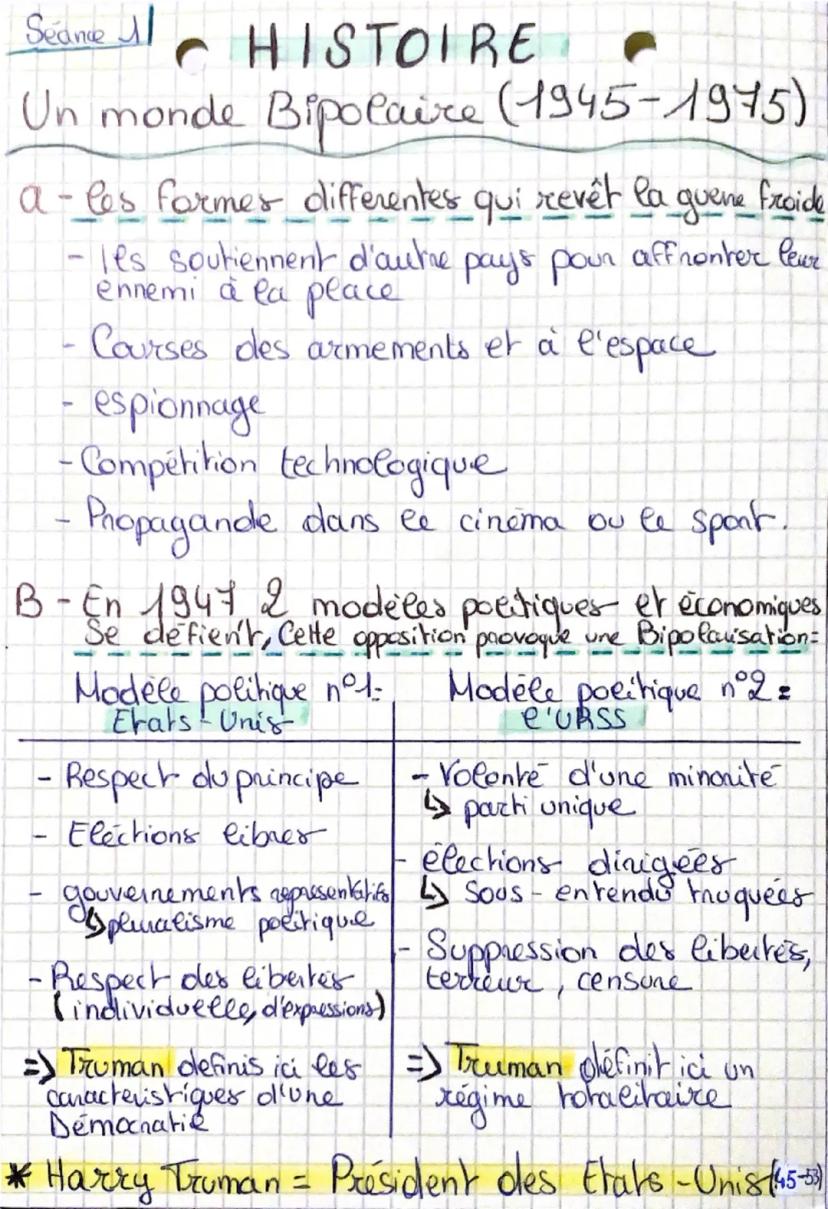 Séance 1
HISTOIRE
Un monde Bipolaire (1945-1975)
a - les formes differentes qui revêt la guerre froide
- Ils soutiennent d'autre pays pour affronter leur
ennemi à la place
- Courses des armements et à l'espace
- espionnage
- Compétition technologique
- Propagande dans le cinéma ou le sport.
B - En 1947 2 modèles politiques et économiques
Se défient, Cette opposition provoque une Bipolarisation =
Modèle politique n°1 =
Etats-Unis
- Respect du principe
- Eléctions libres
- gouvernements représentatifs
↳ pluralisme politique
- Respect des libertés
(individuelle, d'expressions)
=> Truman definis ici les
caractéristiques d'une
Démocratie
Modèle politique n°2 =
l'URSS
- Volonté d'une minorité
↳ parti unique
- élections dirigées
↳ Sous-entendu truquées
- Suppression des libertés,
terreur, censure
=> Truman définit ici un
régime totalitaire
* Harry Truman = Président des Etats-Unis (45-53)